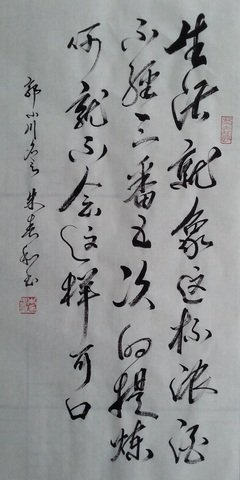 生活就象这杯浓酒
不经三番五次的提炼
呵就不会这样可口
郭小川名言 朱春和书